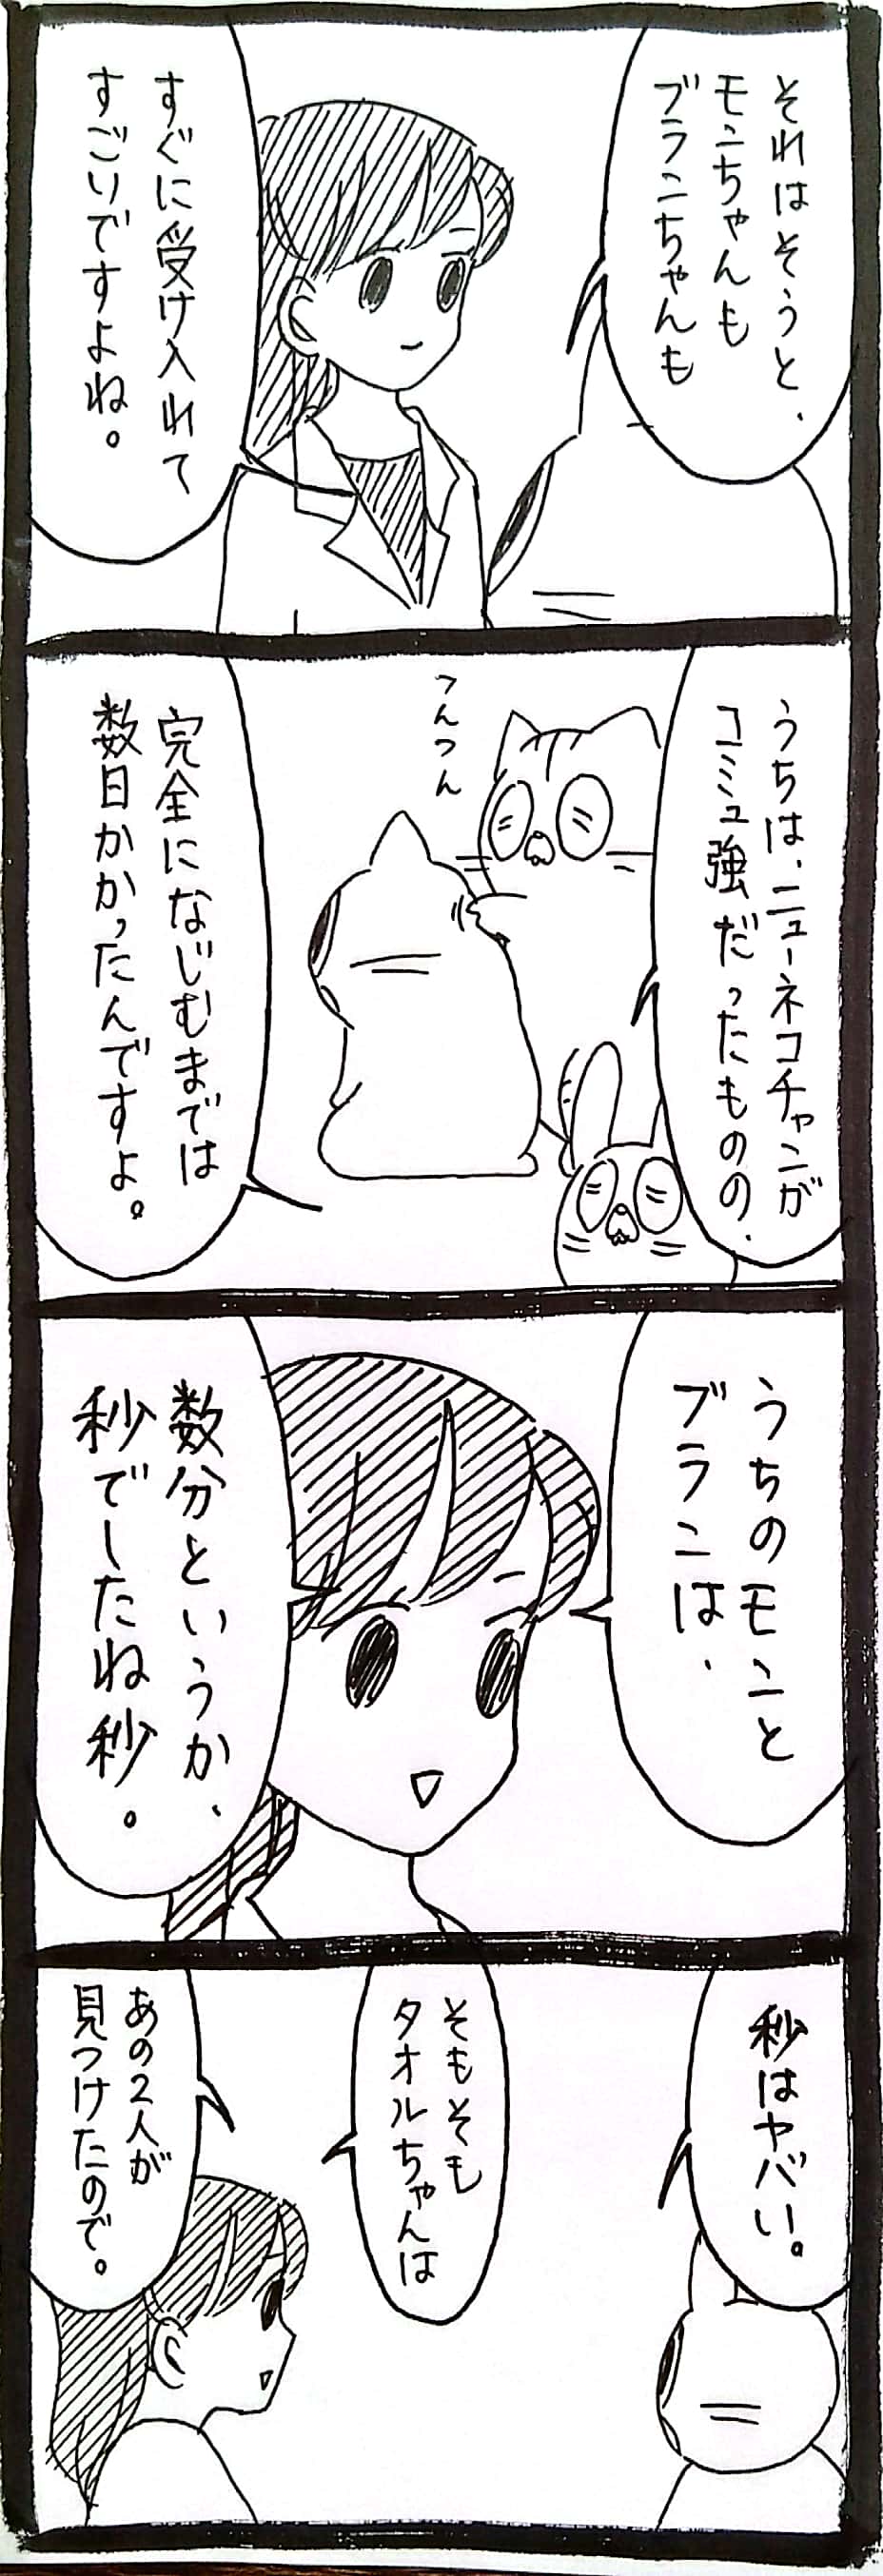 それはそうと、
モンちゃんも
ブランちゃんも
すぐに受け入れて
すごいですよね。
うちは、ニューネコチャンが
コミュ強だったものの、
つんつん
完全になじむまでは
数日かかったんですよ。
うちのモンと
ブランは、
数分というか、
秒でしたね秒。
秒はヤバい。
そもそも
タオルちゃんは
あの2人が
見つけたので。